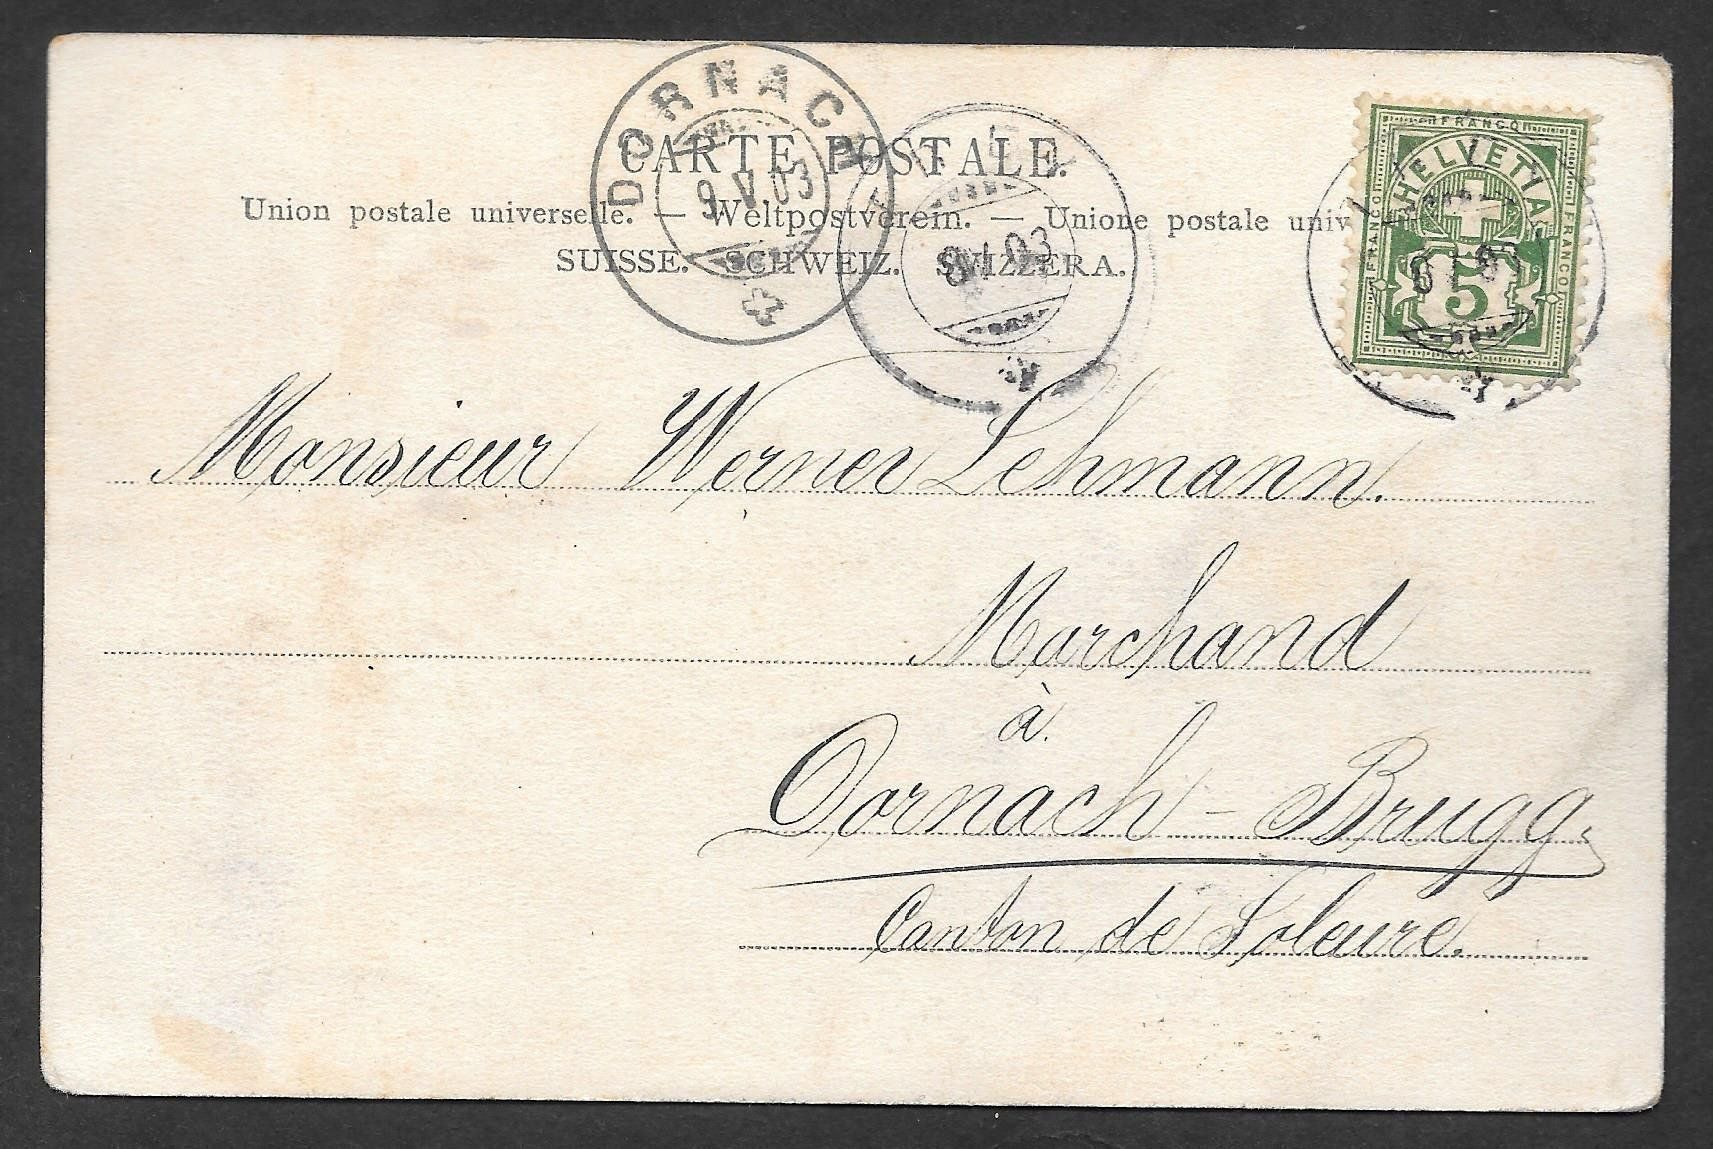 DORNACH
9.V.03
CARTE POSTALE.
Union postale universelle. — Weltpostverein. — Unione postale univ
SUISSE. SCHWEIZ. SVIZZERA.
FRANCO
FRANCO
FRANCO
HELVETIA
5
Monsieur Werner Lehmann.
Marchand
à.
Dornach-Brugg.
Canton de Soleure.